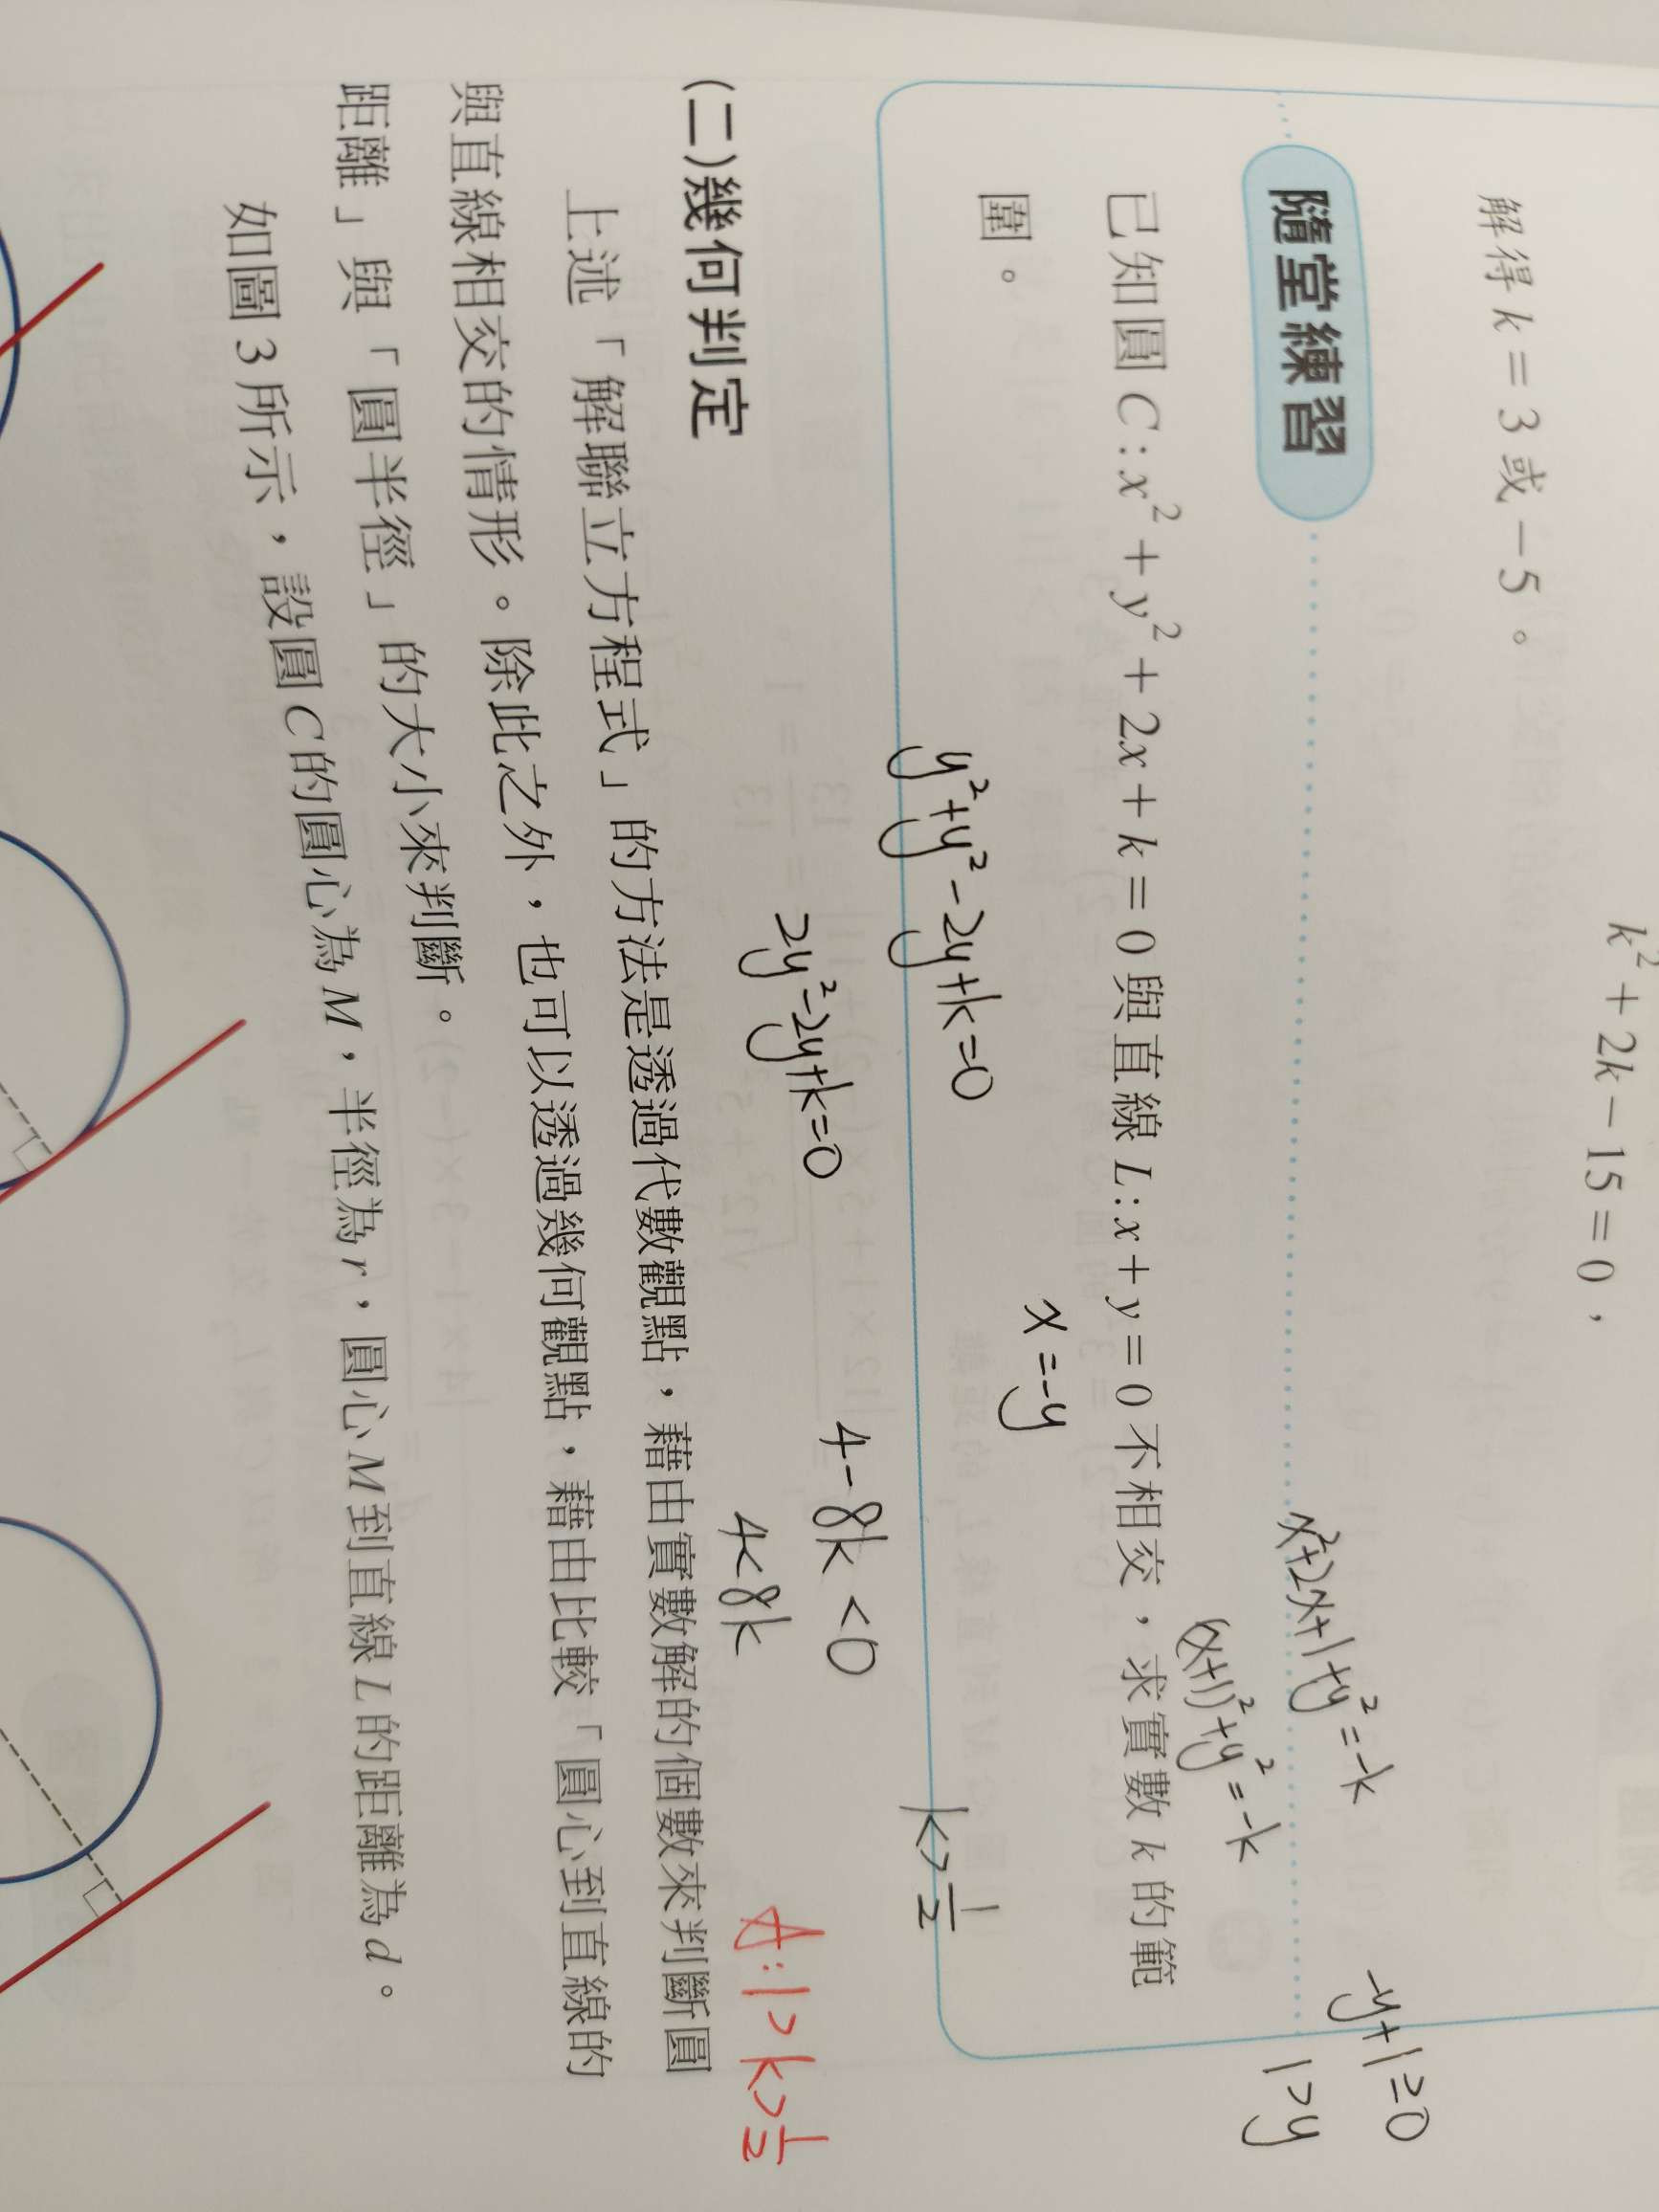 k² + 2k − 15 = 0，
解得 k = 3 或 −5。
隨堂練習
x²+2x+1+y²=-k
-y+1≥0
(x+1)²+y²=-k
1>y
已知圓 C : x² + y² + 2x + k = 0 與直線 L : x + y = 0 不相交，求實數 k 的範
圍。
x=-y
y²+y²-2y+k=0
k>1/2
2y²-2y+k=0
4-8k<0
4<8k
A:1>k>1/2
(二)幾何判定
上述「解聯立方程式」的方法是透過代數觀點，藉由實數解的個數來判斷圓
與直線相交的情形。除此之外，也可以透過幾何觀點，藉由比較「圓心到直線的
距離」與「圓半徑」的大小來判斷。
如圖 3 所示，設圓 C 的圓心為 M，半徑為 r，圓心 M 到直線 L 的距離為 d。